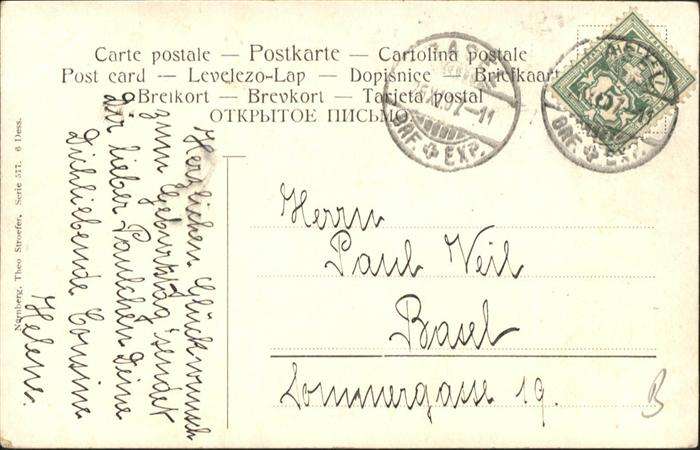 Carte postale — Postkarte — Cartolina postale
Post card — Levelezo-Lap — Dopisnice — Briefkaart
Brefkort — Brevkort — Tarjeta postal
ОТКРЫТОЕ ПИСЬМО
BASEL
BRF. EXP.
Herzlichen Glückwunsch
zum Geburtstag sendet
Dir lieber Paulchen Deine
Dichliebende Cousine
Helene.
Herrn
Paul Weil
Basel
Sommergasse 19.
B
Nürnberg, Theo Stroefer, Serie 577. 6 Dess.